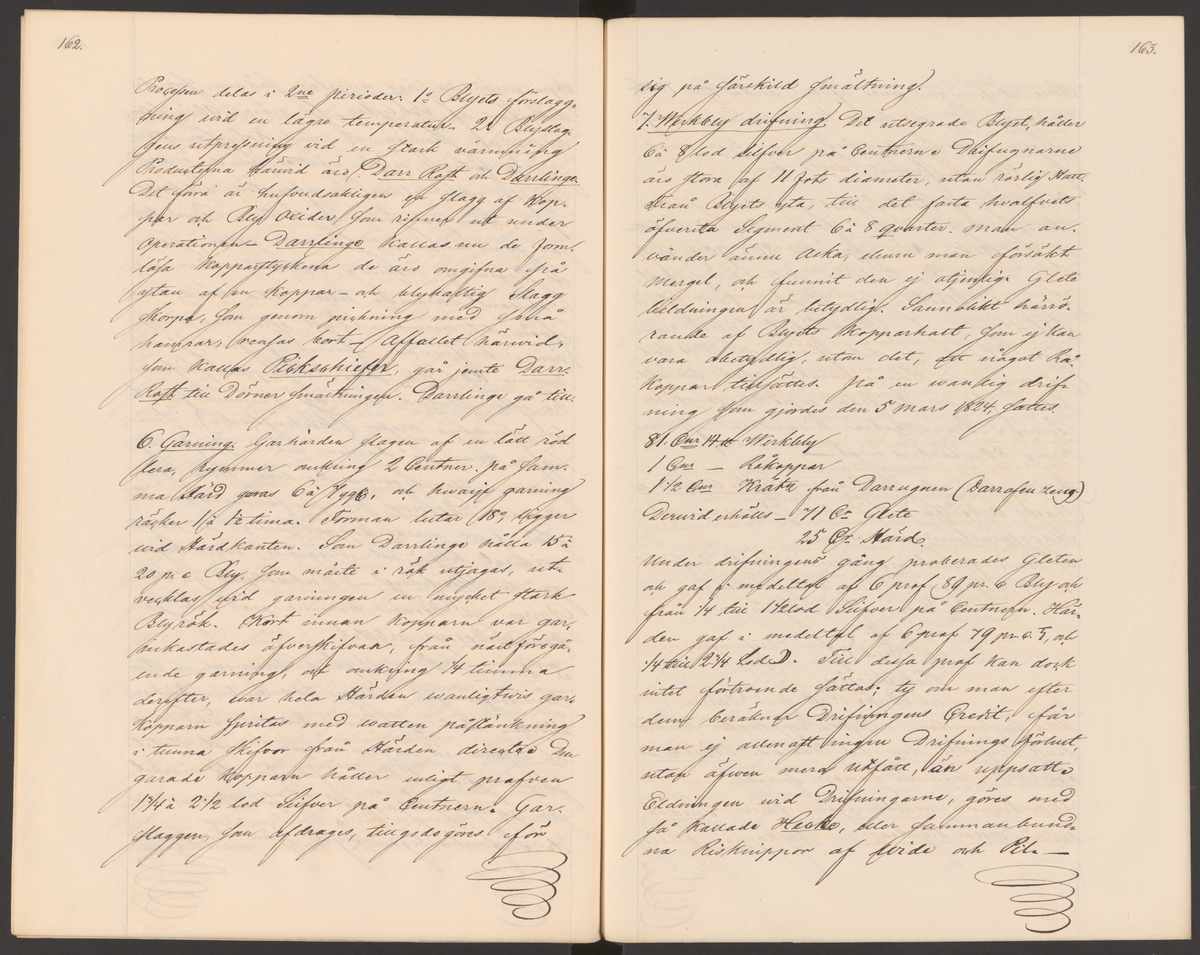 162.
Processen delas i 2ne perioder: 1o Blyets förslagg-
ning wid en lägre temperatur. 2o Blyslag-
gens utpressning vid en stark värmning
Produkterna härwid äro, Darr Rost och Darrlinge.
Det förra är hufvudsakligen en slagg af Kop-
par och Bly Oxider, som rinner ut under
Operationen – Darrlinge kallas nu de form-
lösa Kopparstyckena de äro omgifna på
ytan af en Koppar- och blyhaltig Slagg
skorpa, som genom pickning med små
hamrar, rensas bort – Affallet härwid,
som kallas Pickschiefer, går jemte Darr-
Rost till Dörner smältningen. Darrlinge gå till:
6. Garning. Garhärden slagen af en lätt röd
lera, rymmer omkring 2 Centner. på sam-
ma härd göras 6 à 7 ggr, och hwarje garning
räcker 1 à 1 1/2 tima. Forman lutar 18o, ligger
wid Härdkanten. Som Darrlinge hålla 15 à
20 pr c Bly, som måste i rök utjagas, ut-
vecklas wid garningen en mycket stark
Blyrök. Kort innan Kopparn var gar,
inkastades öfverskifvan, från nästföregå-
ende garning, och omkring 1/4 timma
derefter, war hela Härden wanligtwis gar.
Kopparn spritas med watten påstänkning
i tunna skifvor från Härden directe. Den
garade Kopparn håller enligt profven
1 3/4 à 2 1/2 lod Silfver på Centnern. Gar-
slaggen, som afdrages, tillgodogöres för
163.
sig på särskild smältning.
7. Werkbly drifning. Det utsegrade Blyet, håller
6 à 8 lod silfver på Centnern. Drifugnarne
äro stora af 11 fots diameter, utan rörlig Hatt.
Från Blyets yta, till det fasta hvalfvets
öfversta Segment 6 à 8 quarter. man an-
vänder ännu Aska, ehuru man försökt
Mergel, och funnit den ej otjenlig. Glete
bildningen är betydlig. Sannolikt härrö-
rande af Blyets Kopparhalt, som ej kan
vara obetydlig, utom det, att något Rå-
Koppar tillsättes. På en wanlig drif-
ning som gjordes den 5 mars 1824, sattes.
81. Cnr 14 ℔ Werkbly
1 Cnr — Råkoppar
1 1/2 Cnr Krätz från Darrugnen (Darrofenzeug)
Derwid erhölls – 71 Cr Glete
25 Cr Härd.
Under drifningens gång proberades Gleten
och gaf i medeltal af 6 prof 89 pr. c Bly och
från 1/4 till 1 1/2 lod Silfver på Centnern. Här-
den gaf i medeltal af 6 prof 79 pr. c. ♄, och
1/4 till 2 1/4 Lod ☽. Till dessa prof kan dock
intet förtroende sättas; ty om man efter
dem beräknar Drifningens Credit, får
man ej allenast ingen Drifnings förlust,
utan äfwen mera utfått, än uppsatt.
Eldningen wid Drifningarne, göres med
så kallade Hecke, eller sammanbund-
na Risknippor af wide och Pil. —